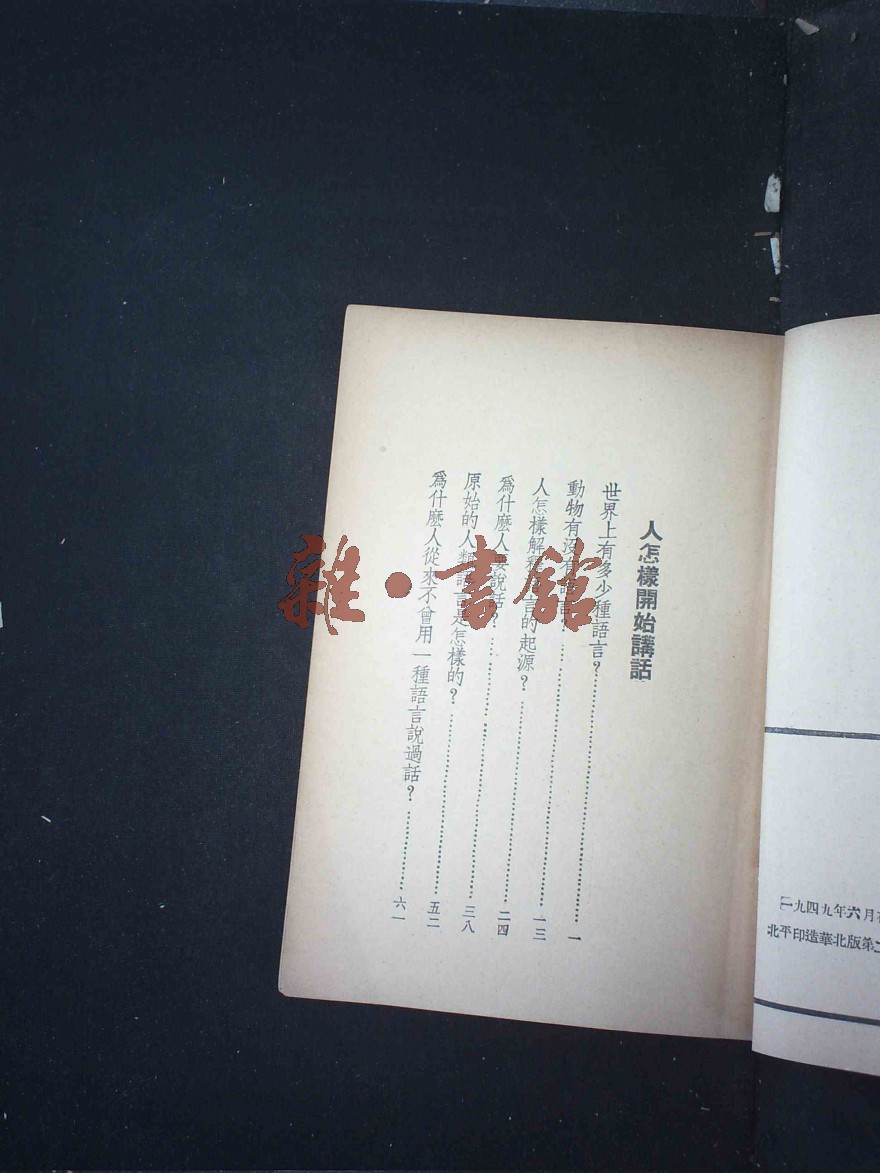 人怎樣開始講話
世界上有多少種語言？……一
動物有沒有語言？……一三
人怎樣解釋語言的起源？……二四
爲什麼人要說話？……三八
原始的人類語言是怎樣的？……五二
爲什麼人從來不曾用一種語言說過話？……六一
一九四九年六月
北平印造華北版第
雜·書館